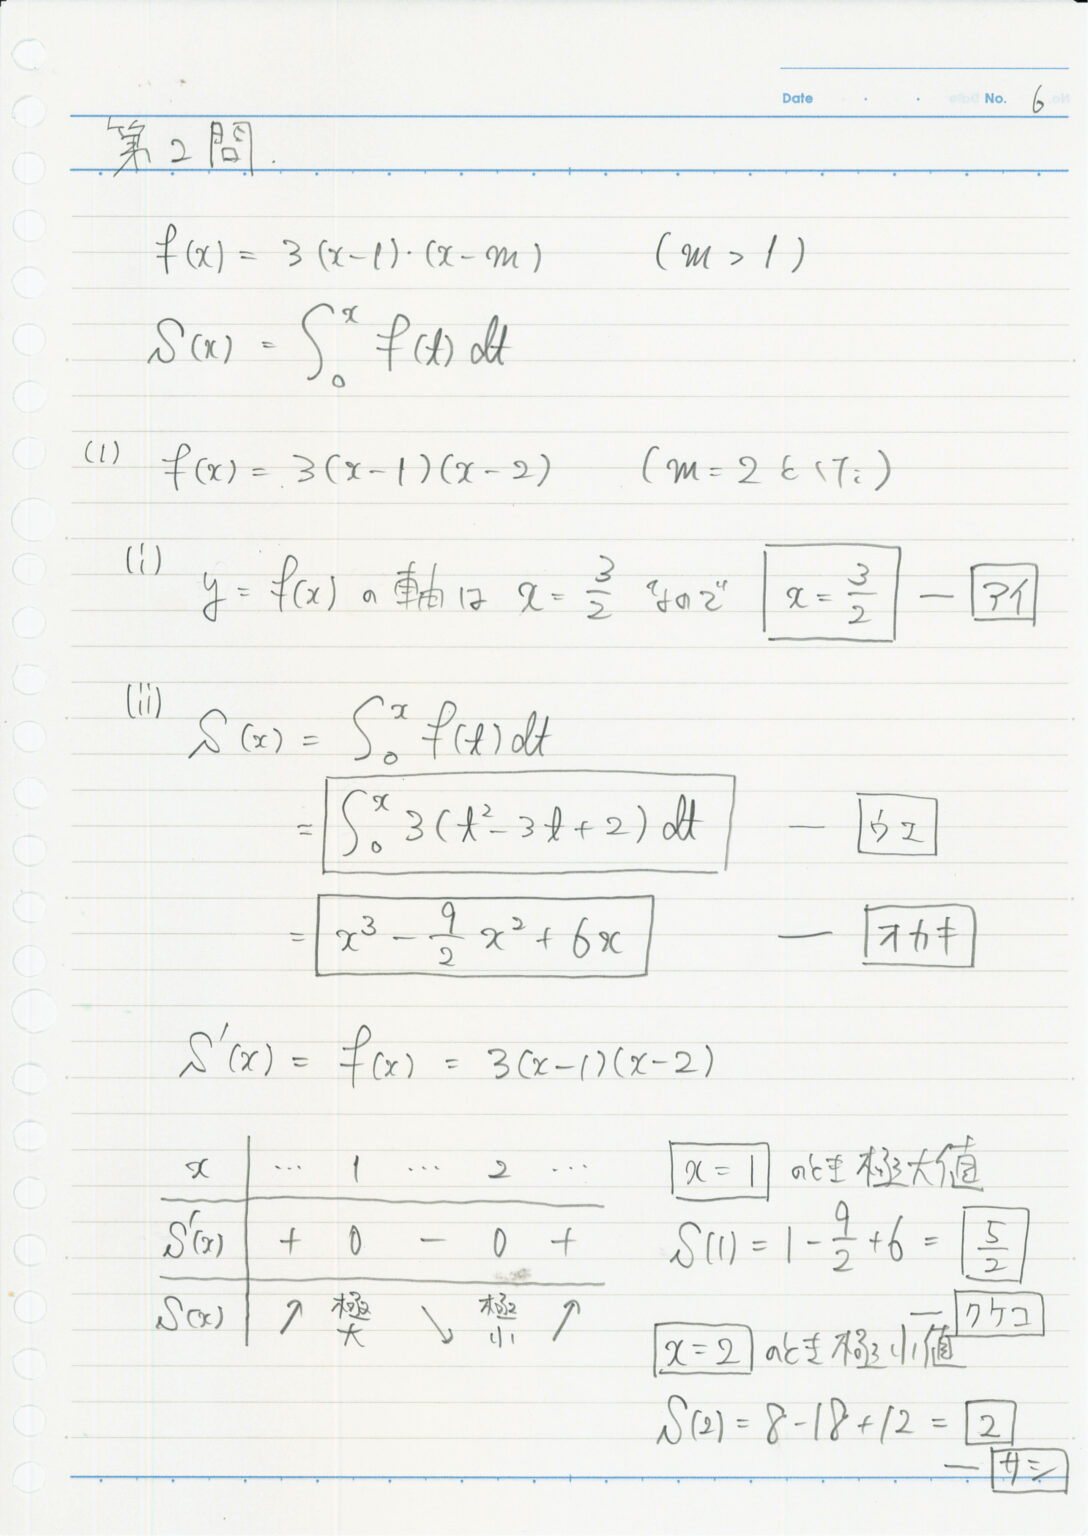 Date . . . No. 6
第2問.
f(x) = 3(x-1)·(x-m) (m > 1)
S(x) = ∫₀ˣ f(t) dt
(1) f(x) = 3(x-1)(x-2) (m = 2 として)
(i) y = f(x) の軸は x = 3/2 なので x = 3/2 — アイ
(ii) S(x) = ∫₀ˣ f(t) dt
= ∫₀ˣ 3(t²-3t+2) dt — ウエ
= x³ - 9/2 x² + 6x — オカキ
S'(x) = f(x) = 3(x-1)(x-2)
x … 1 … 2 …
S'(x) + 0 - 0 +
S(x) ↗ 極大 ↘ 極小 ↗
x = 1 のとき極大値
S(1) = 1 - 9/2 + 6 = 5/2
— クケコ
x = 2 のとき極小値
S(2) = 8 - 18 + 12 = 2
— サシ